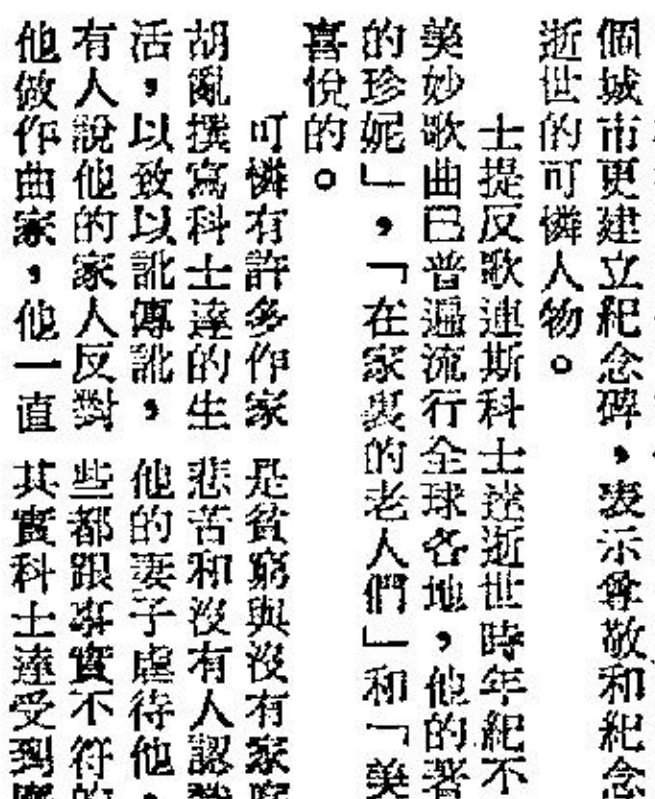 個城市更建立紀念碑，表示尊敬和紀念
逝世的可憐人物。
士提反歌連斯科士達逝世時年紀不
美妙歌曲已普遍流行全球各地，他的著
的珍妮」，「在家裏的老人們」和「美
喜悅的。
可憐有許多作家
胡亂撰寫科士達的生
活，以致以訛傳訛，
有人說他的家人反對
他做作曲家，他一直
是貧窮與沒有家
悲苦和沒有人認
他的妻子虐待他，
些都跟事實不符的
其實科士達受到